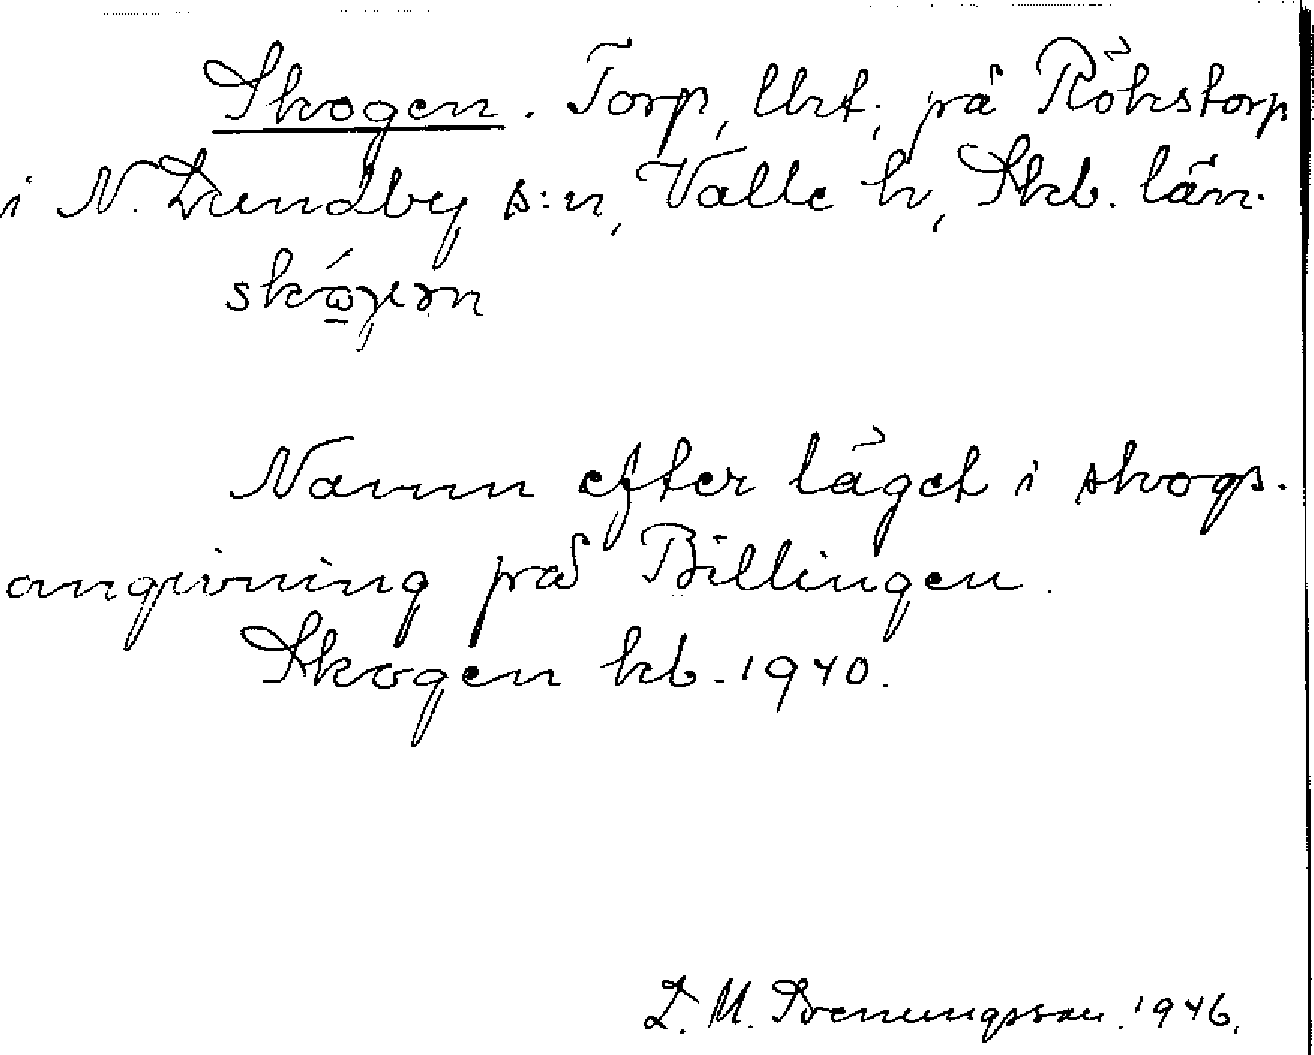 Skogen. Torp, Urt; på Rökstorp
i N. Lundby s:n, Valle h, Skb. län.
Namn efter läget i skogs-
omgivning på Billingen.
Skogen kb. 1940.
L. M. Svenungsson. 1946.